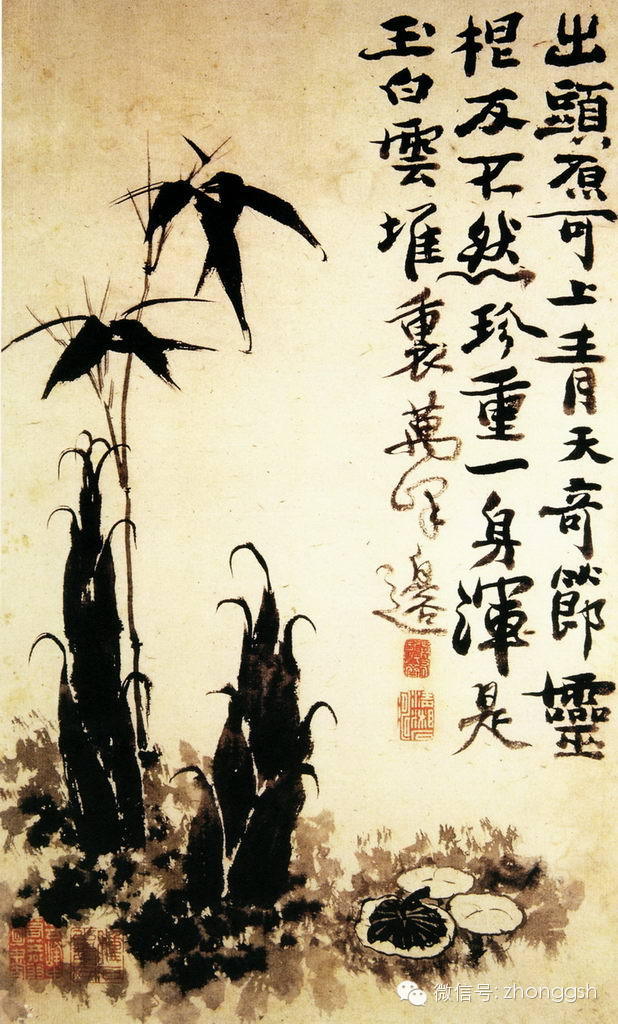 出頭原可上青天奇節靈
根反不然珍重一身渾是
玉白雲堆裏萬峯邊
微信号: zhonggsh